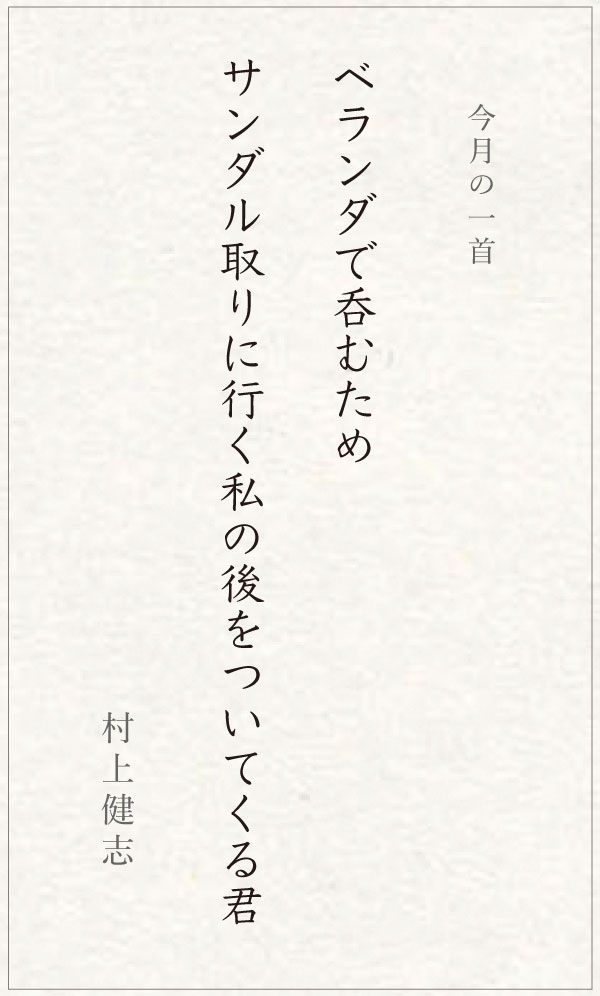 今月の一首
ベランダで呑むため
サンダル取りに行く私の後をついてくる君
村上健志